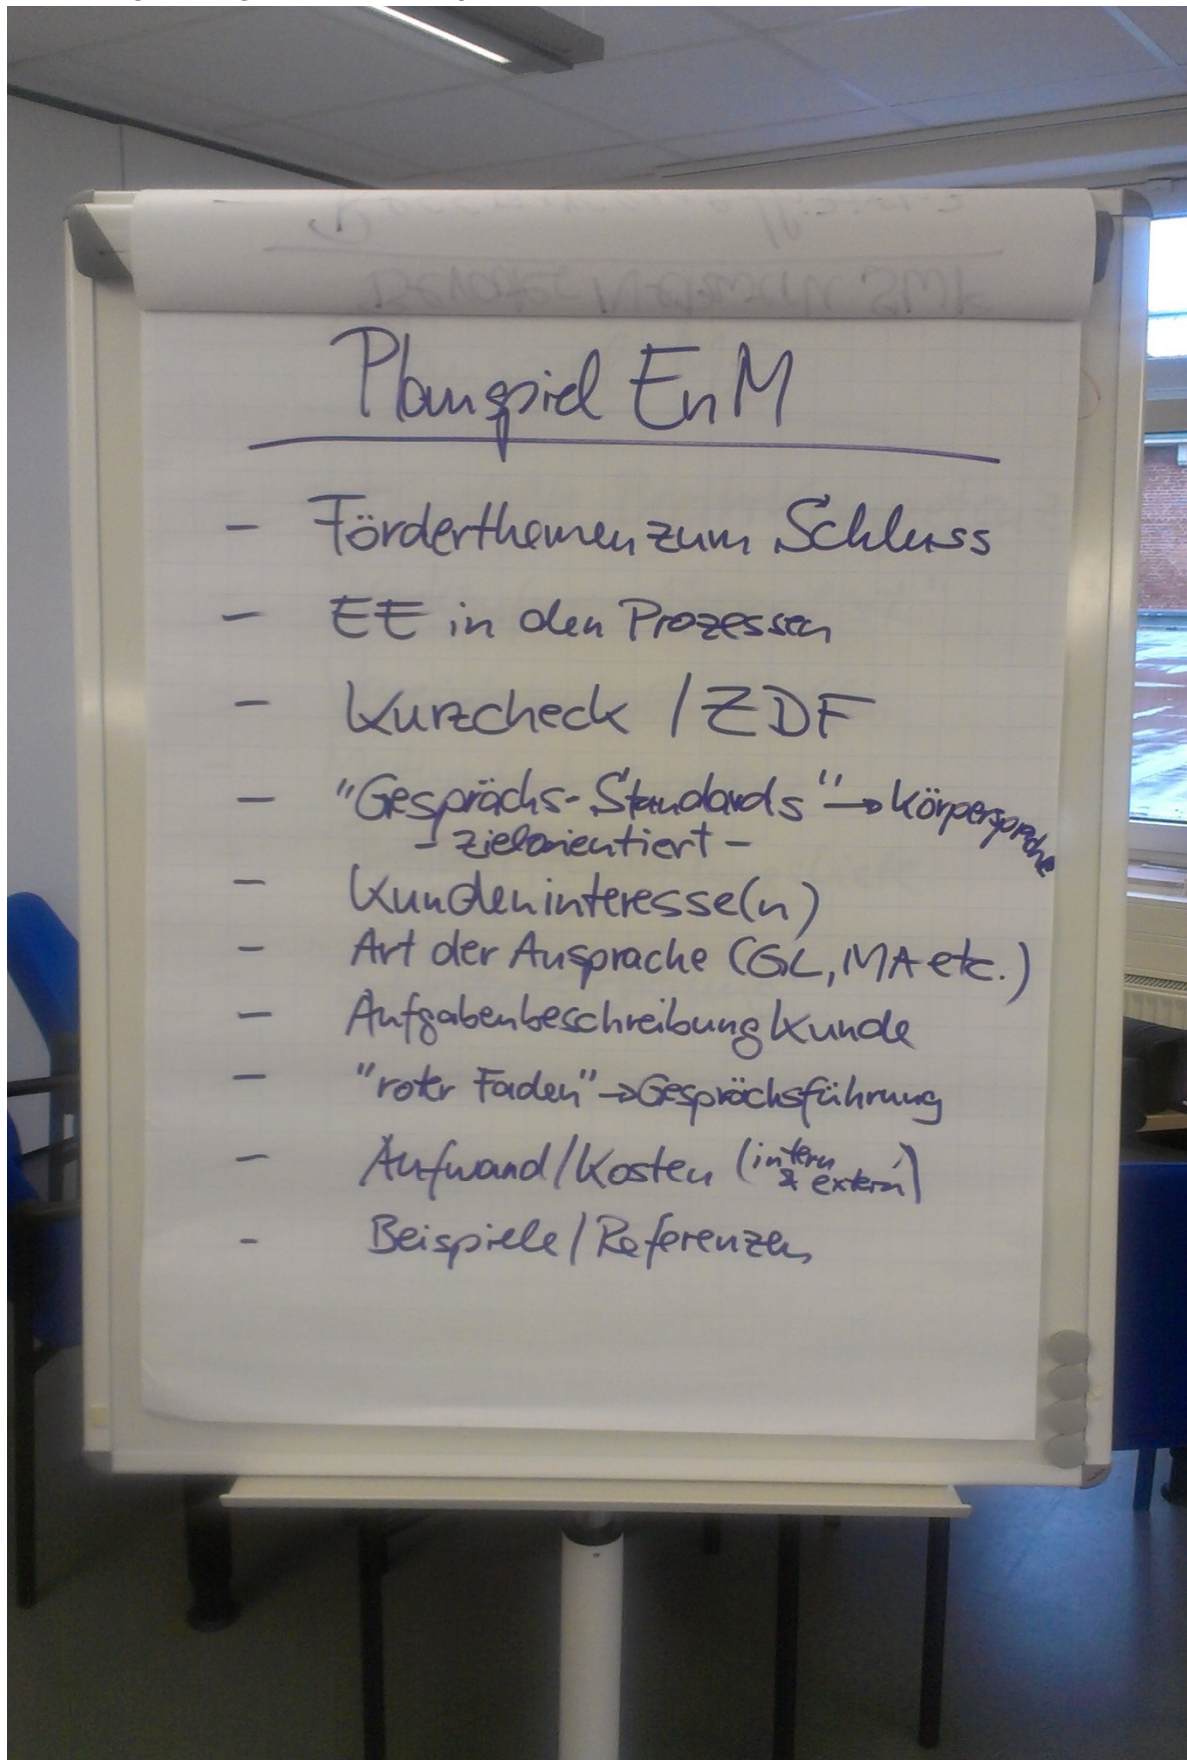 Planspiel EnM
- Förderthemen zum Schluss
- EE in den Prozessen
- Kurzcheck / ZDF
- "Gesprächs-Standards" → Körpersprache
- zielorientiert -
- Kundeninteresse(n)
- Art der Ansprache (GL, MA etc.)
- Aufgabenbeschreibung Kunde
- "roter Faden" → Gesprächsführung
- Aufwand/Kosten (intern & extern)
- Beispiele / Referenzen